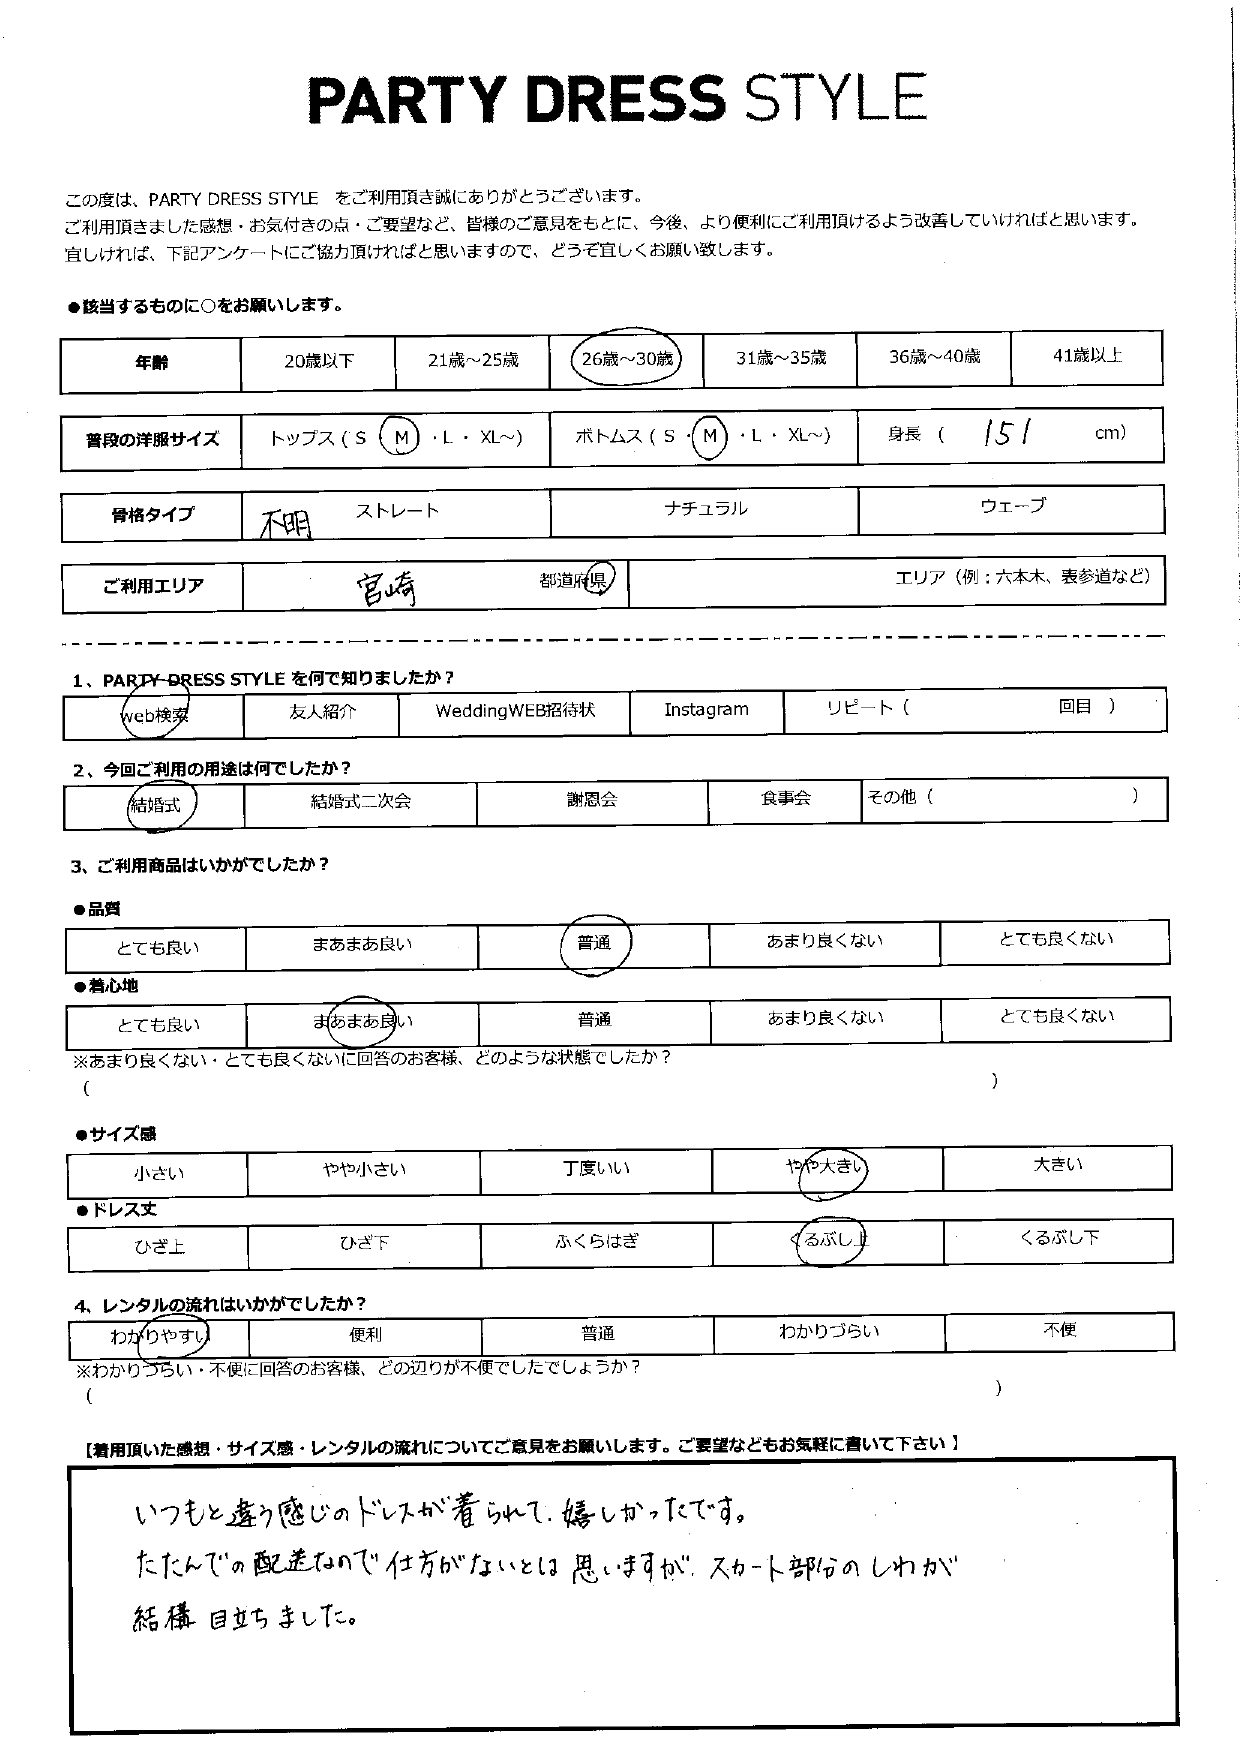 PARTY DRESS STYLE
この度は、PARTY DRESS STYLE をご利用頂き誠にありがとうございます。
ご利用頂きました感想・お気付きの点・ご要望など、皆様のご意見をもとに、今後、より便利にご利用頂けるよう改善していければと思います。
宜しければ、下記アンケートにご協力頂ければと思いますので、どうぞ宜しくお願い致します。
●該当するものに○をお願いします。
年齢 20歳以下 21歳～25歳 26歳～30歳 31歳～35歳 36歳～40歳 41歳以上
普段の洋服サイズ トップス ( S ・ M ・L ・ XL～) ボトムス ( S ・ M ・L ・ XL～) 身長 ( 151 cm)
骨格タイプ 不明 ストレート ナチュラル ウェーブ
ご利用エリア 宮崎 都道府県 エリア（例：六本木、表参道など）
1、PARTY DRESS STYLE を何で知りましたか？
web検索 友人紹介 WeddingWEB招待状 Instagram リピート（ 回目 ）
2、今回ご利用の用途は何でしたか？
結婚式 結婚式二次会 謝恩会 食事会 その他（ ）
3、ご利用商品はいかがでしたか？
●品質
とても良い まあまあ良い 普通 あまり良くない とても良くない
●着心地
とても良い まあまあ良い 普通 あまり良くない とても良くない
※あまり良くない・とても良くないに回答のお客様、どのような状態でしたか？
（ ）
●サイズ感
小さい やや小さい 丁度いい やや大きい 大きい
●ドレス丈
ひざ上 ひざ下 ふくらはぎ くるぶし上 くるぶし下
4、レンタルの流れはいかがでしたか？
わかりやすい 便利 普通 わかりづらい 不便
※わかりづらい・不便に回答のお客様、どの辺りが不便でしたでしょうか？
（ ）
【着用頂いた感想・サイズ感・レンタルの流れについてご意見をお願いします。ご要望などもお気軽に書いて下さい 】
いつもと違う感じのドレスが着られて、嬉しかったです。
たたんでの配送なので仕方がないとは思いますが、スカート部分のしわが
結構目立ちました。